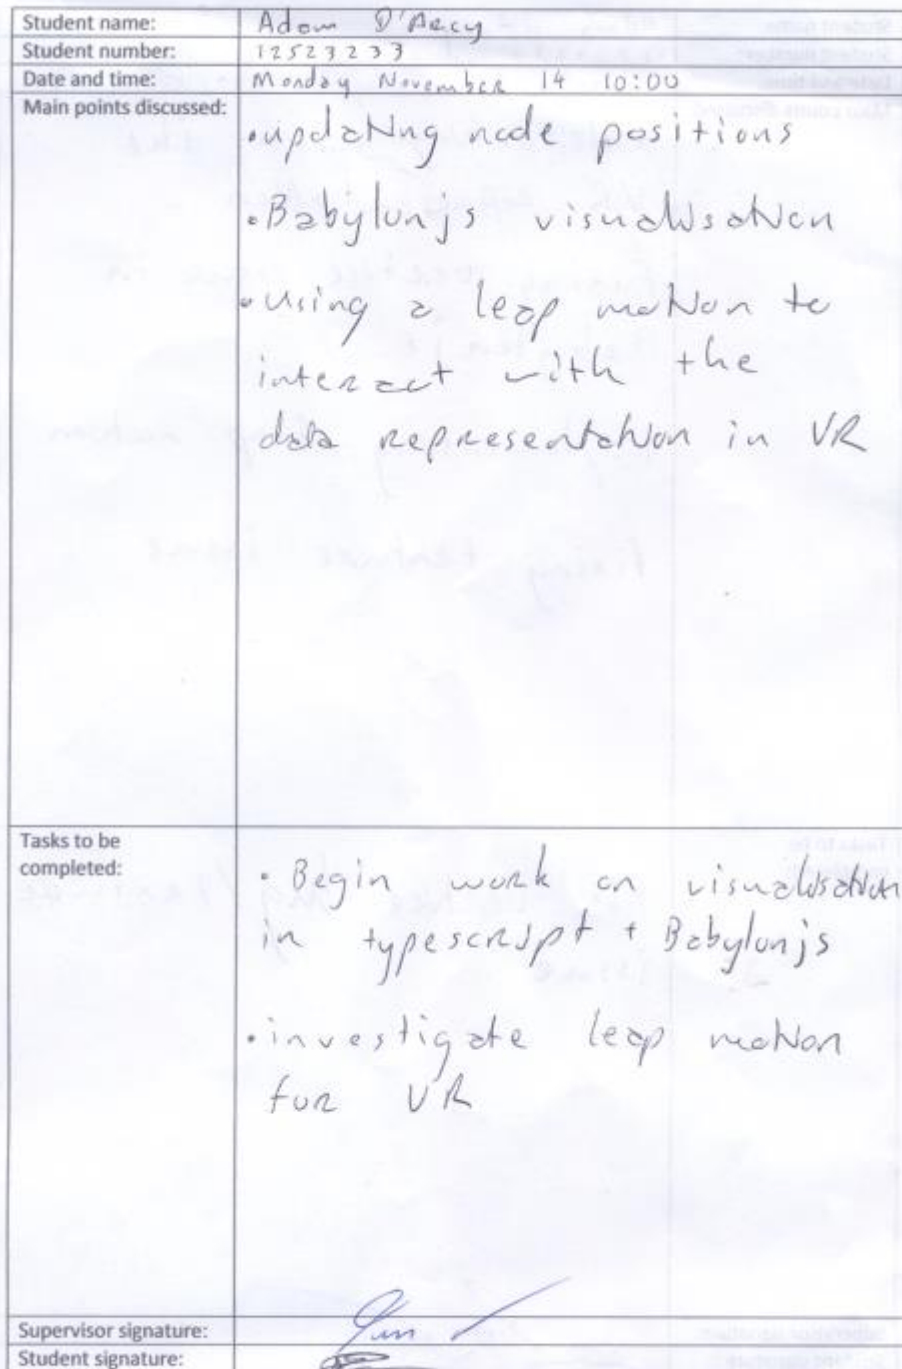 Student name: Adam D'Arcy
Student number: 12523233
Date and time: Monday November 14 10:00
Main points discussed:
• updating node positions
• Babylonjs visualisation
• Using a leap motion to
interact with the
data representation in VR
Tasks to be
completed:
• Begin work on visualisation
in typescript + Babylonjs
• investigate leap motion
for VR
Supervisor signature:
Student signature: